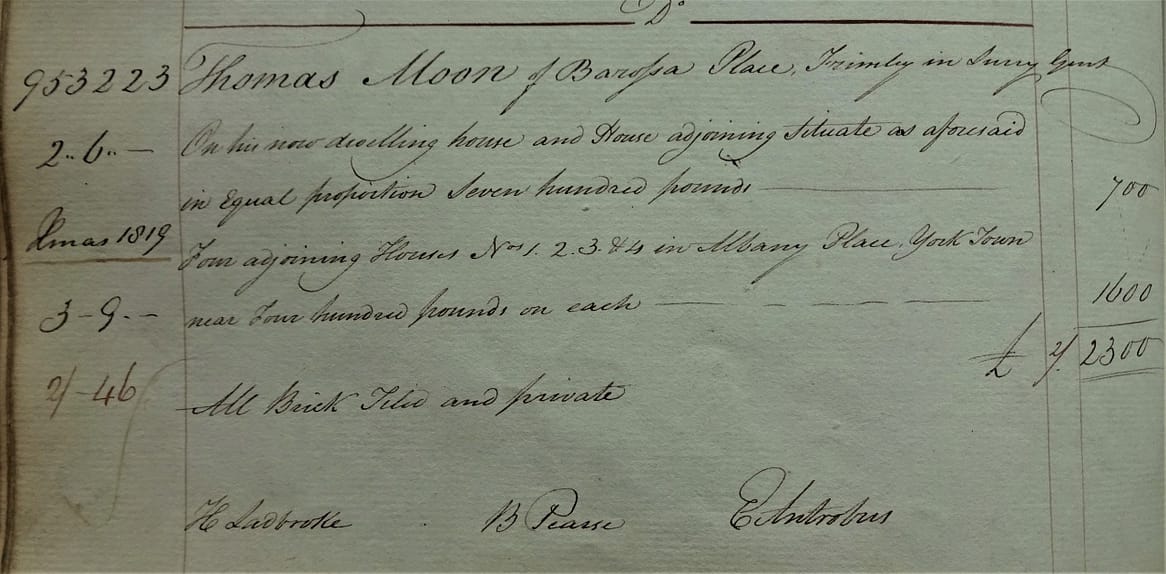 Do
953223 Thomas Moon of Barossa Place, Frimley in Surry Gent
2..6..— On his now dwelling house and House adjoining situate as aforesaid
in Equal proportion Seven hundred pounds — 700
Xmas 1819 Four adjoining Houses Nos 1. 2. 3. & 4 in Albany Place, York Town
3-9.- near Four hundred pounds on each — — — — — 1600
£ 2/. 2300
2/-46 All Brick Tiled and private
H Ladbroke B Pearse E Antrobus